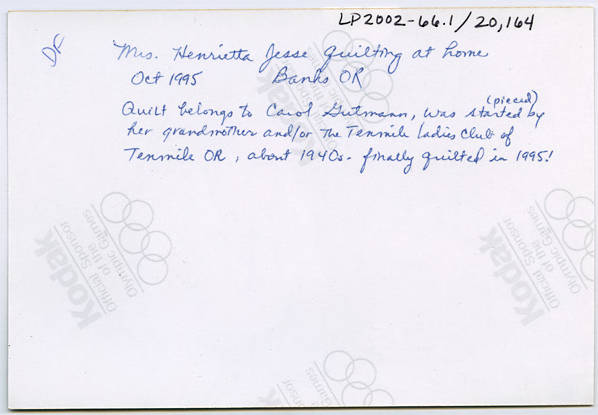 LP2002-66.1/20,164
DR
Mrs. Henrietta Jesse quilting at home
Oct 1995 Banks OR
(pieced)
Quilt belongs to Carol Gutmann, was started by
her grandmother and/or the Tenmile Ladies Club of
Tenmile OR, about 1940s - finally quilted in 1995!
Kodak
Official Sponsor
of the
Olympic Games
Kodak
Official Sponsor
of the
Olympic Games
Kodak
Official Sponsor
of the
Olympic Games
Official Sponsor
of the
Olympic Games